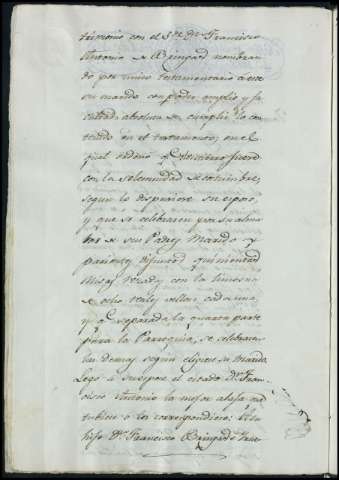 trimonio con el Sr. Dn. Francisco
Antonio de Bringas nombran
do por unico testamentario a este
su marido con poder amplio y fa
cultad absoluta de cumplir lo con
tenido en el testamento; en el
qual ordenó q. el entierro fuere
con la solemnidad de costumbre,
segun lo dispusiere su esposo,
y que se celebraren por su alma
las de sus Padres, Marido y
parientes difuntos quinientas
Misas rezadas con la limosna
de ocho reales vellon cada una,
y q. separada la quarta parte
para la Parroquia, se celebraran
las demas segun eligiese su Marido.
Legó a su esposo el citado Dn. Fran-
cisco Antonio la mejor alaja que
tubiese o les correspondiere: A su
hijo Dn. Francisco Bringas